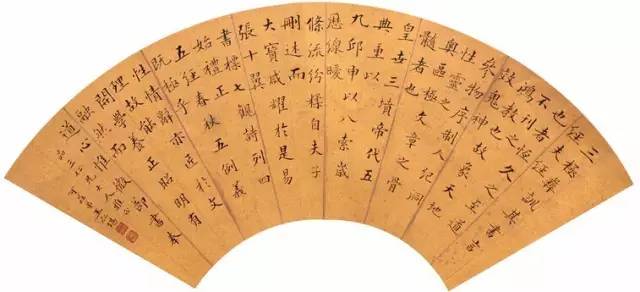 三極彝訓其書言
經也者恒久之至道
不刊之
鴻教也故象天地
效鬼神
參物序制人紀洞
性靈之
奧區極文章之骨
髓者也
皇世三墳帝代五
典重以
九邱申以八索歲
歷綿曖
條流紛糅自夫子
刪述而
大寶咸耀於是易
張十翼
書標七觀詩列四
始禮正
五經春秋五例義
既極乎
性情辭亦匠於文
理故能
開學養正昭明有
融然而
道心惟微
書奉
品三仁兄大人雅正